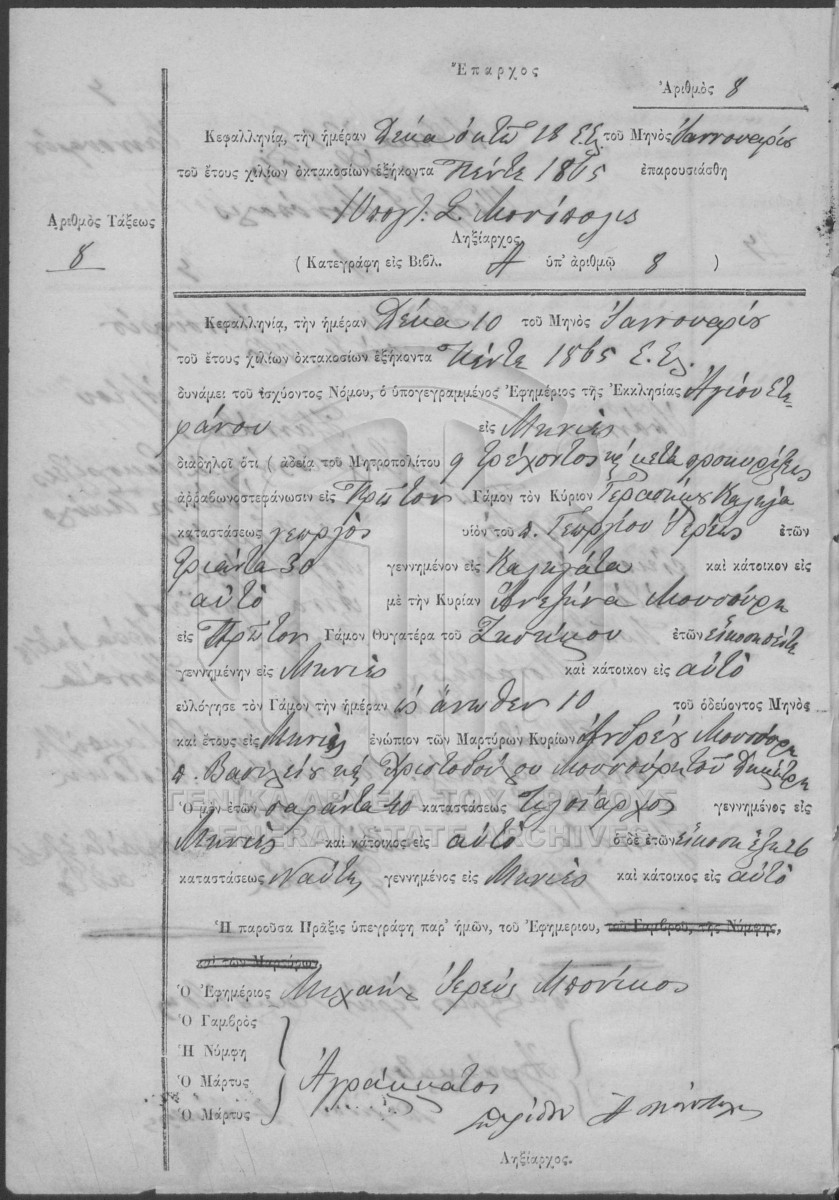 Ἔπαρχος
Ἀριθμὸς 8
Κεφαλληνία, τὴν ἡμέραν Δέκα ὀκτὼ 18 Ε.Ε. τοῦ Μηνὸς Ἰαννουαρίου
τοῦ ἔτους χιλίων ὀκτακοσίων ἑξήκοντα Πέντε 1865 ἐπαρουσιάσθη
Ἀριθμὸς Τάξεως
8
Ληξίαρχος
( Κατεγράφη εἰς Βιβλ. Α ὑπ' ἀριθμῷ 8 )
Κεφαλληνία, τὴν ἡμέραν Δέκα 10 τοῦ Μηνὸς Ἰαννουαρίου
τοῦ ἔτους χιλίων ὀκτακοσίων ἑξήκοντα Πέντε 1865 Ε.Ε.
δυνάμει τοῦ ἰσχύοντος Νόμου, ὁ ὑπογεγραμμένος Ἐφημέριος τῆς Ἐκκλησίας Ἁγίου Στε
φάνου εἰς Μηνιὲς
διαδηλοῖ ὅτι ( ἀδείᾳ τοῦ Μητροπολίτου 9 τρέχοντος κὲ μετὰ προκυρίξεις
ἀῤῥαβωνοστεφάνωσιν εἰς Πρῶτον Γάμον τὸν Κύριον Γεράσιμον Καληγᾶ
καταστάσεως γεοργὸς υἱὸν τοῦ π. Γεωργίου Ἱερέως ἐτῶν
τριάντα 30 γεννημένον εἰς Καληγάτα καὶ κάτοικον εἰς
αὐτὸ μὲ τὴν Κυρίαν Ἀνεζίνα Μουσούρη
εἰς Πρῶτον Γάμον Θυγατέρα τοῦ Ζησήμου ἐτῶν εἴκοση πέντε
γεννημένην εἰς Μηνιὲς καὶ κάτοικον εἰς αὐτὸ
εὐλόγησε τὸν Γάμον τὴν ἡμέραν ὡς ἄνωθεν 10 τοῦ ὁδεύοντος Μηνὸς
καὶ ἔτους εἰς Μηνιὲς ἐνώπιον τῶν Μαρτύρων Κυρίων Ἀνδρέου Μουσούρη
π. Βασιλείου κὲ Χριστοδούλου Μουσούρη τοῦ Δημήτρη
ΓΕΝΙΚΑ ΑΡΧΕΙΑ ΤΟΥ ΚΡΑΤΟΥΣ
GENERAL STATE ARCHIVES
Ὁ μὲν ἐτῶν σαράντα 40 καταστάσεως γεννημένος εἰς
Μηνιὲς καὶ κάτοικος εἰς αὐτὸ ὁ δὲ ἐτῶν εἴκοση ἕξη 26
καταστάσεως Ναύτης γεννημένος εἰς Μηνιὲς καὶ κάτοικος εἰς αὐτὸ
Ἡ παροῦσα Πρᾶξις ὑπεγράφη παρ' ἡμῶν, τοῦ Ἐφημερίου, τοῦ Γαμβροῦ, τῆς Νύμφης,
καὶ τῶν Μαρτύρων
Ὁ Ἐφημέριος Μιχαὴλ Ἱερεὺς Μπονίκος
Ὁ Γαμβρὸς
Ἡ Νύμφη
Ὁ Μάρτυς Ἀγράμματος
Ὁ Μάρτυς
Ληξίαρχος.